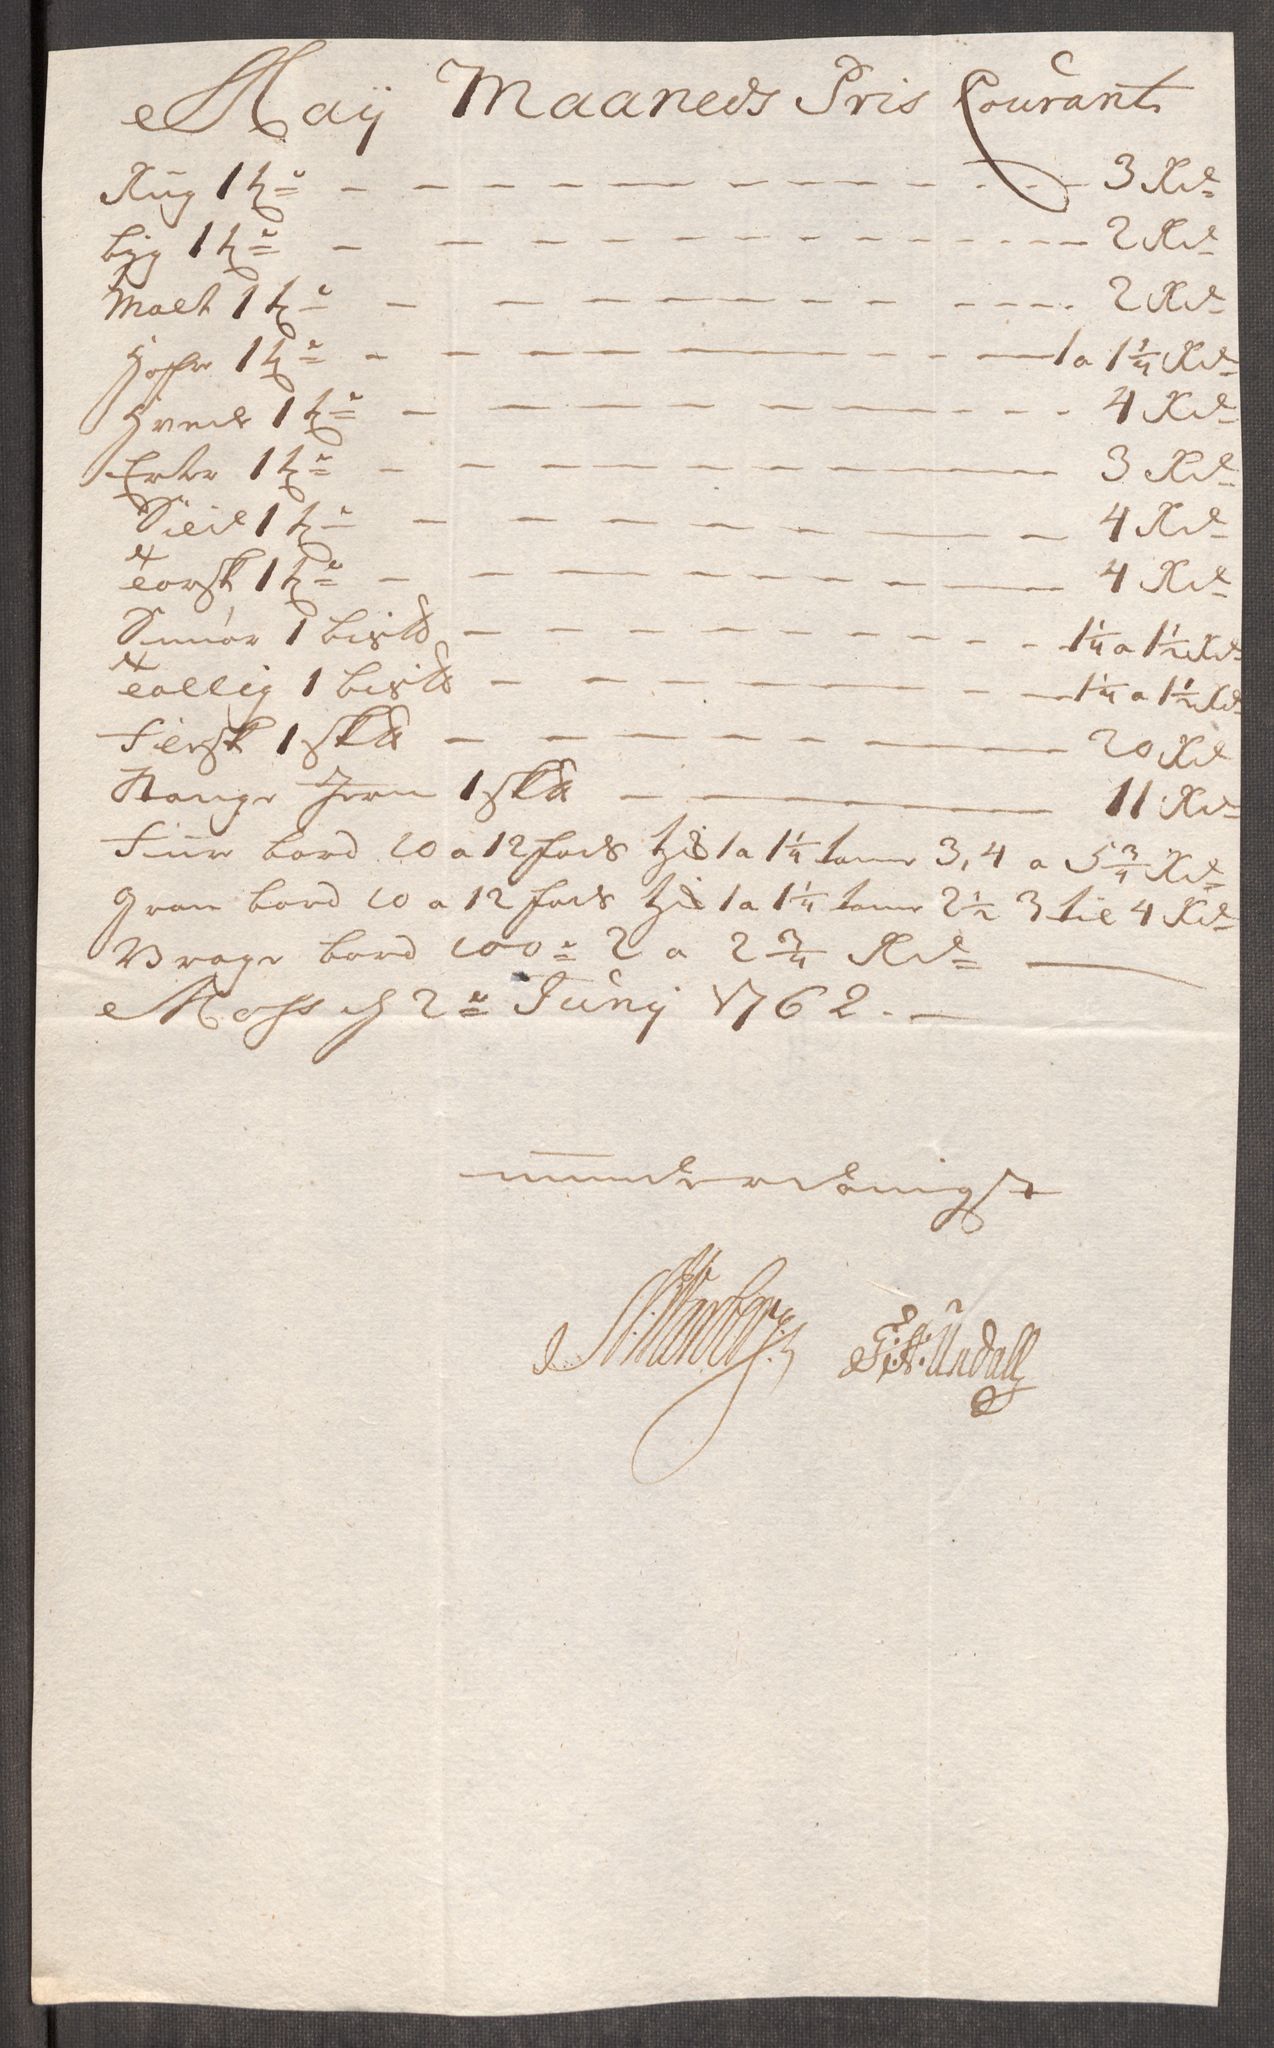 Maÿ Maaneds Pris Courant
Rug 1 tr 3 Rd
byg 1 tr 2 Rd
Malt 1 tr 2 Rd
Hafre 1 tr 1 a 1 1/4 Rd
Hvede 1 tr 4 Rd
Erter 1 tr 3 Rd
Sild 1 tr 4 Rd
Torsk 1 tr 4 Rd
Smör 1 bis℔ 1 1/4 a 1 1/2 Rd
Tallig 1 bis℔ 1 1/4 a 1 1/2 Rd
Fiersk 1 sk℔ 20 Rd
Stange Jern 1 sk℔ 11 Rd
Furu bord 10 a 12 fods 1 a 1 1/4 tomme 3, 4 a 5 3/4 Rd
Gran bord 10 a 12 fods 1 a 1 1/4 tomme 2 1/2 3 til 4 Rd
Vrage bord 100 2 a 2 3/4 Rd
Moss d 2 Junÿ 1762.
underdanigst